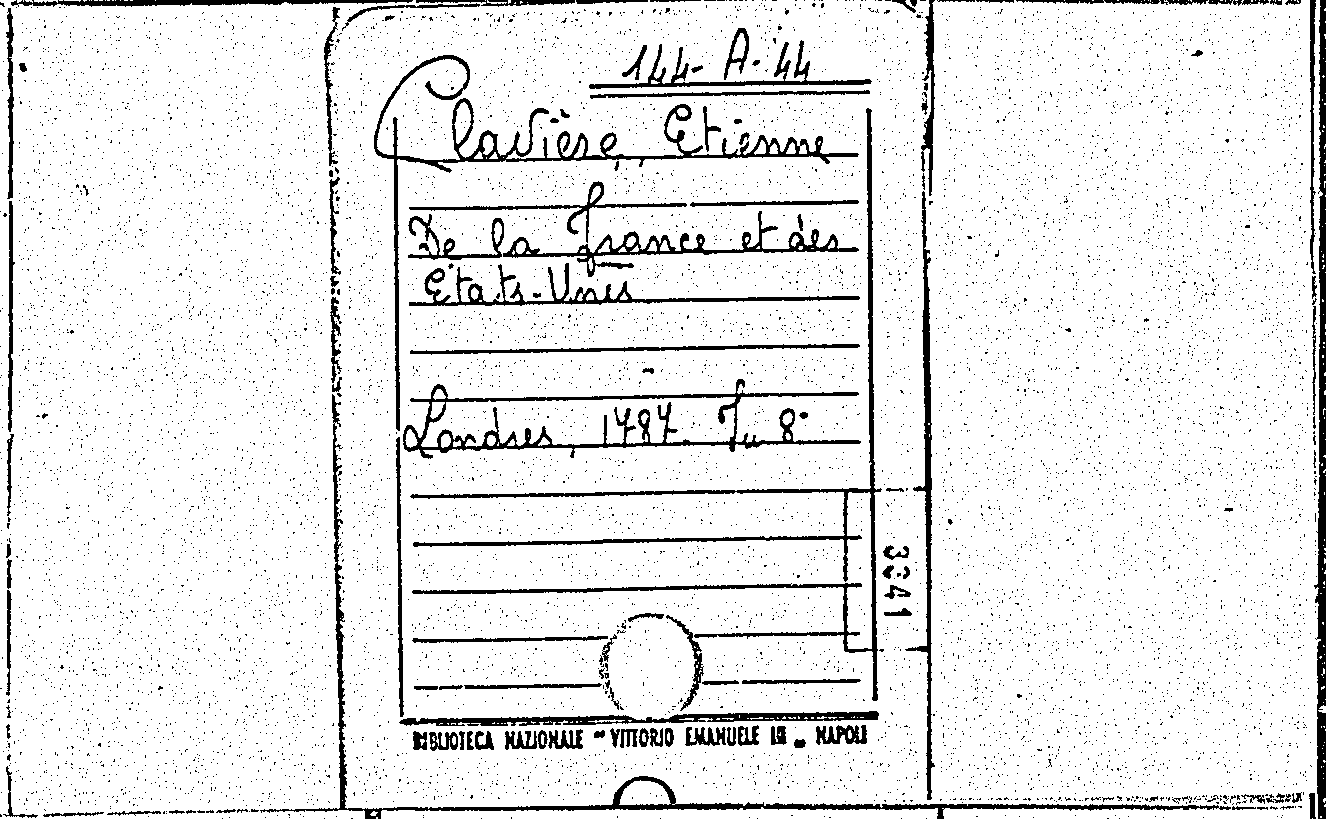 144-A-44
Clavière, Etienne
De la France et des
Etats-Unis
Londres, 1787. In 8°
3341
BIBLIOTECA NAZIONALE "VITTORIO EMANUELE III" - NAPOLI